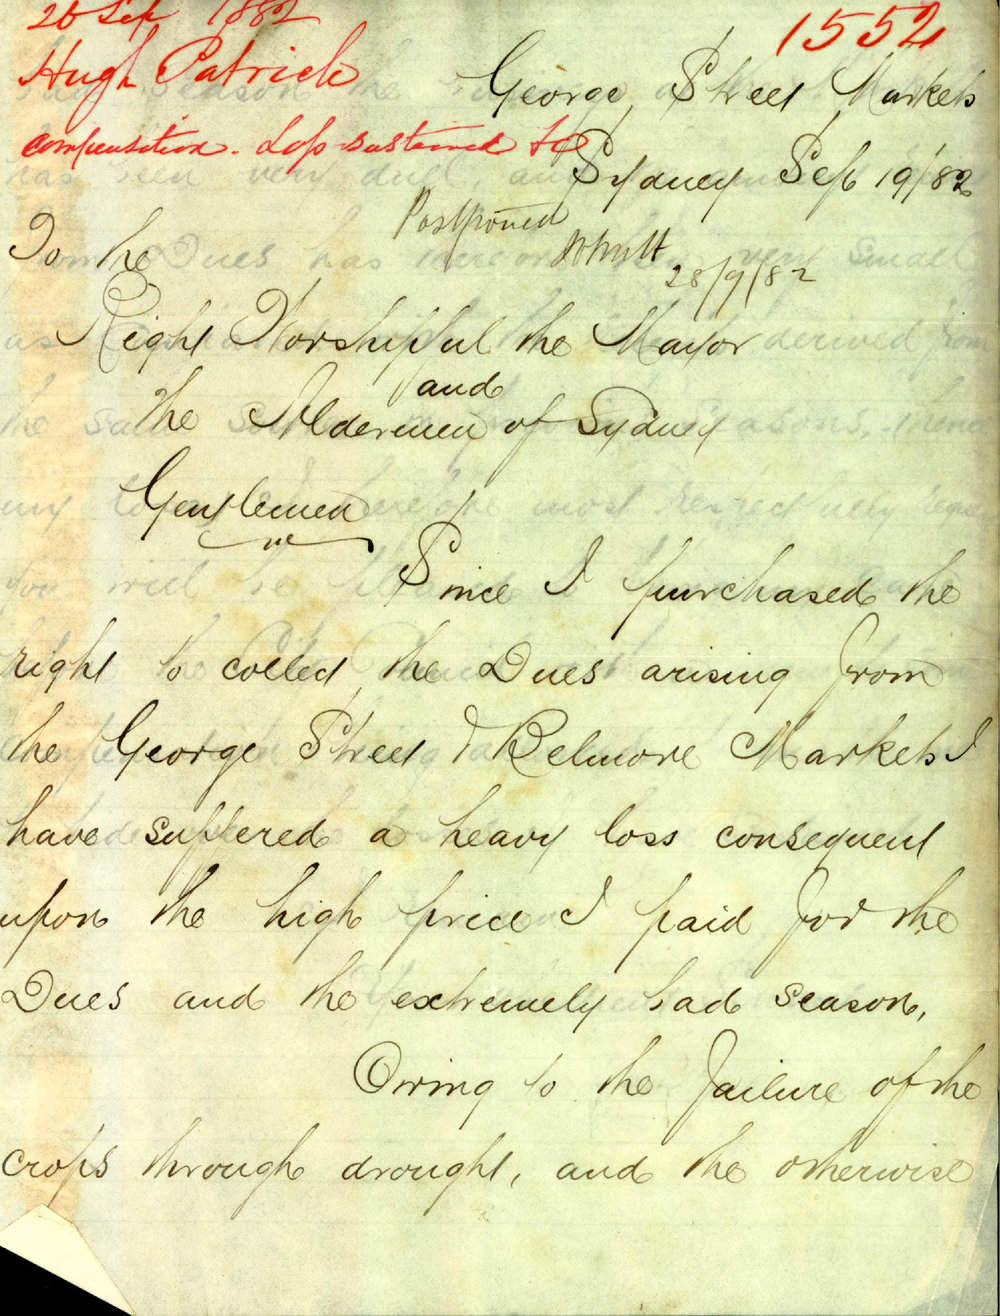 26 Sep 1882
1552
Hugh Patrick
George Street Markets
compensation. Loss sustained &c
Sydney Sep 19/82
Postponed
28/9/82
To the
Right Worshipful the Mayor
and
the Aldermen of Sydney
Gentlemen
Since I purchased the
right to collect the Dues arising from
the George Street & Belmore Markets I
have suffered a heavy loss consequent
upon the high price I paid for the
Dues and the extremely bad season,
Owing to the failure of the
crops through drought, and the otherwise